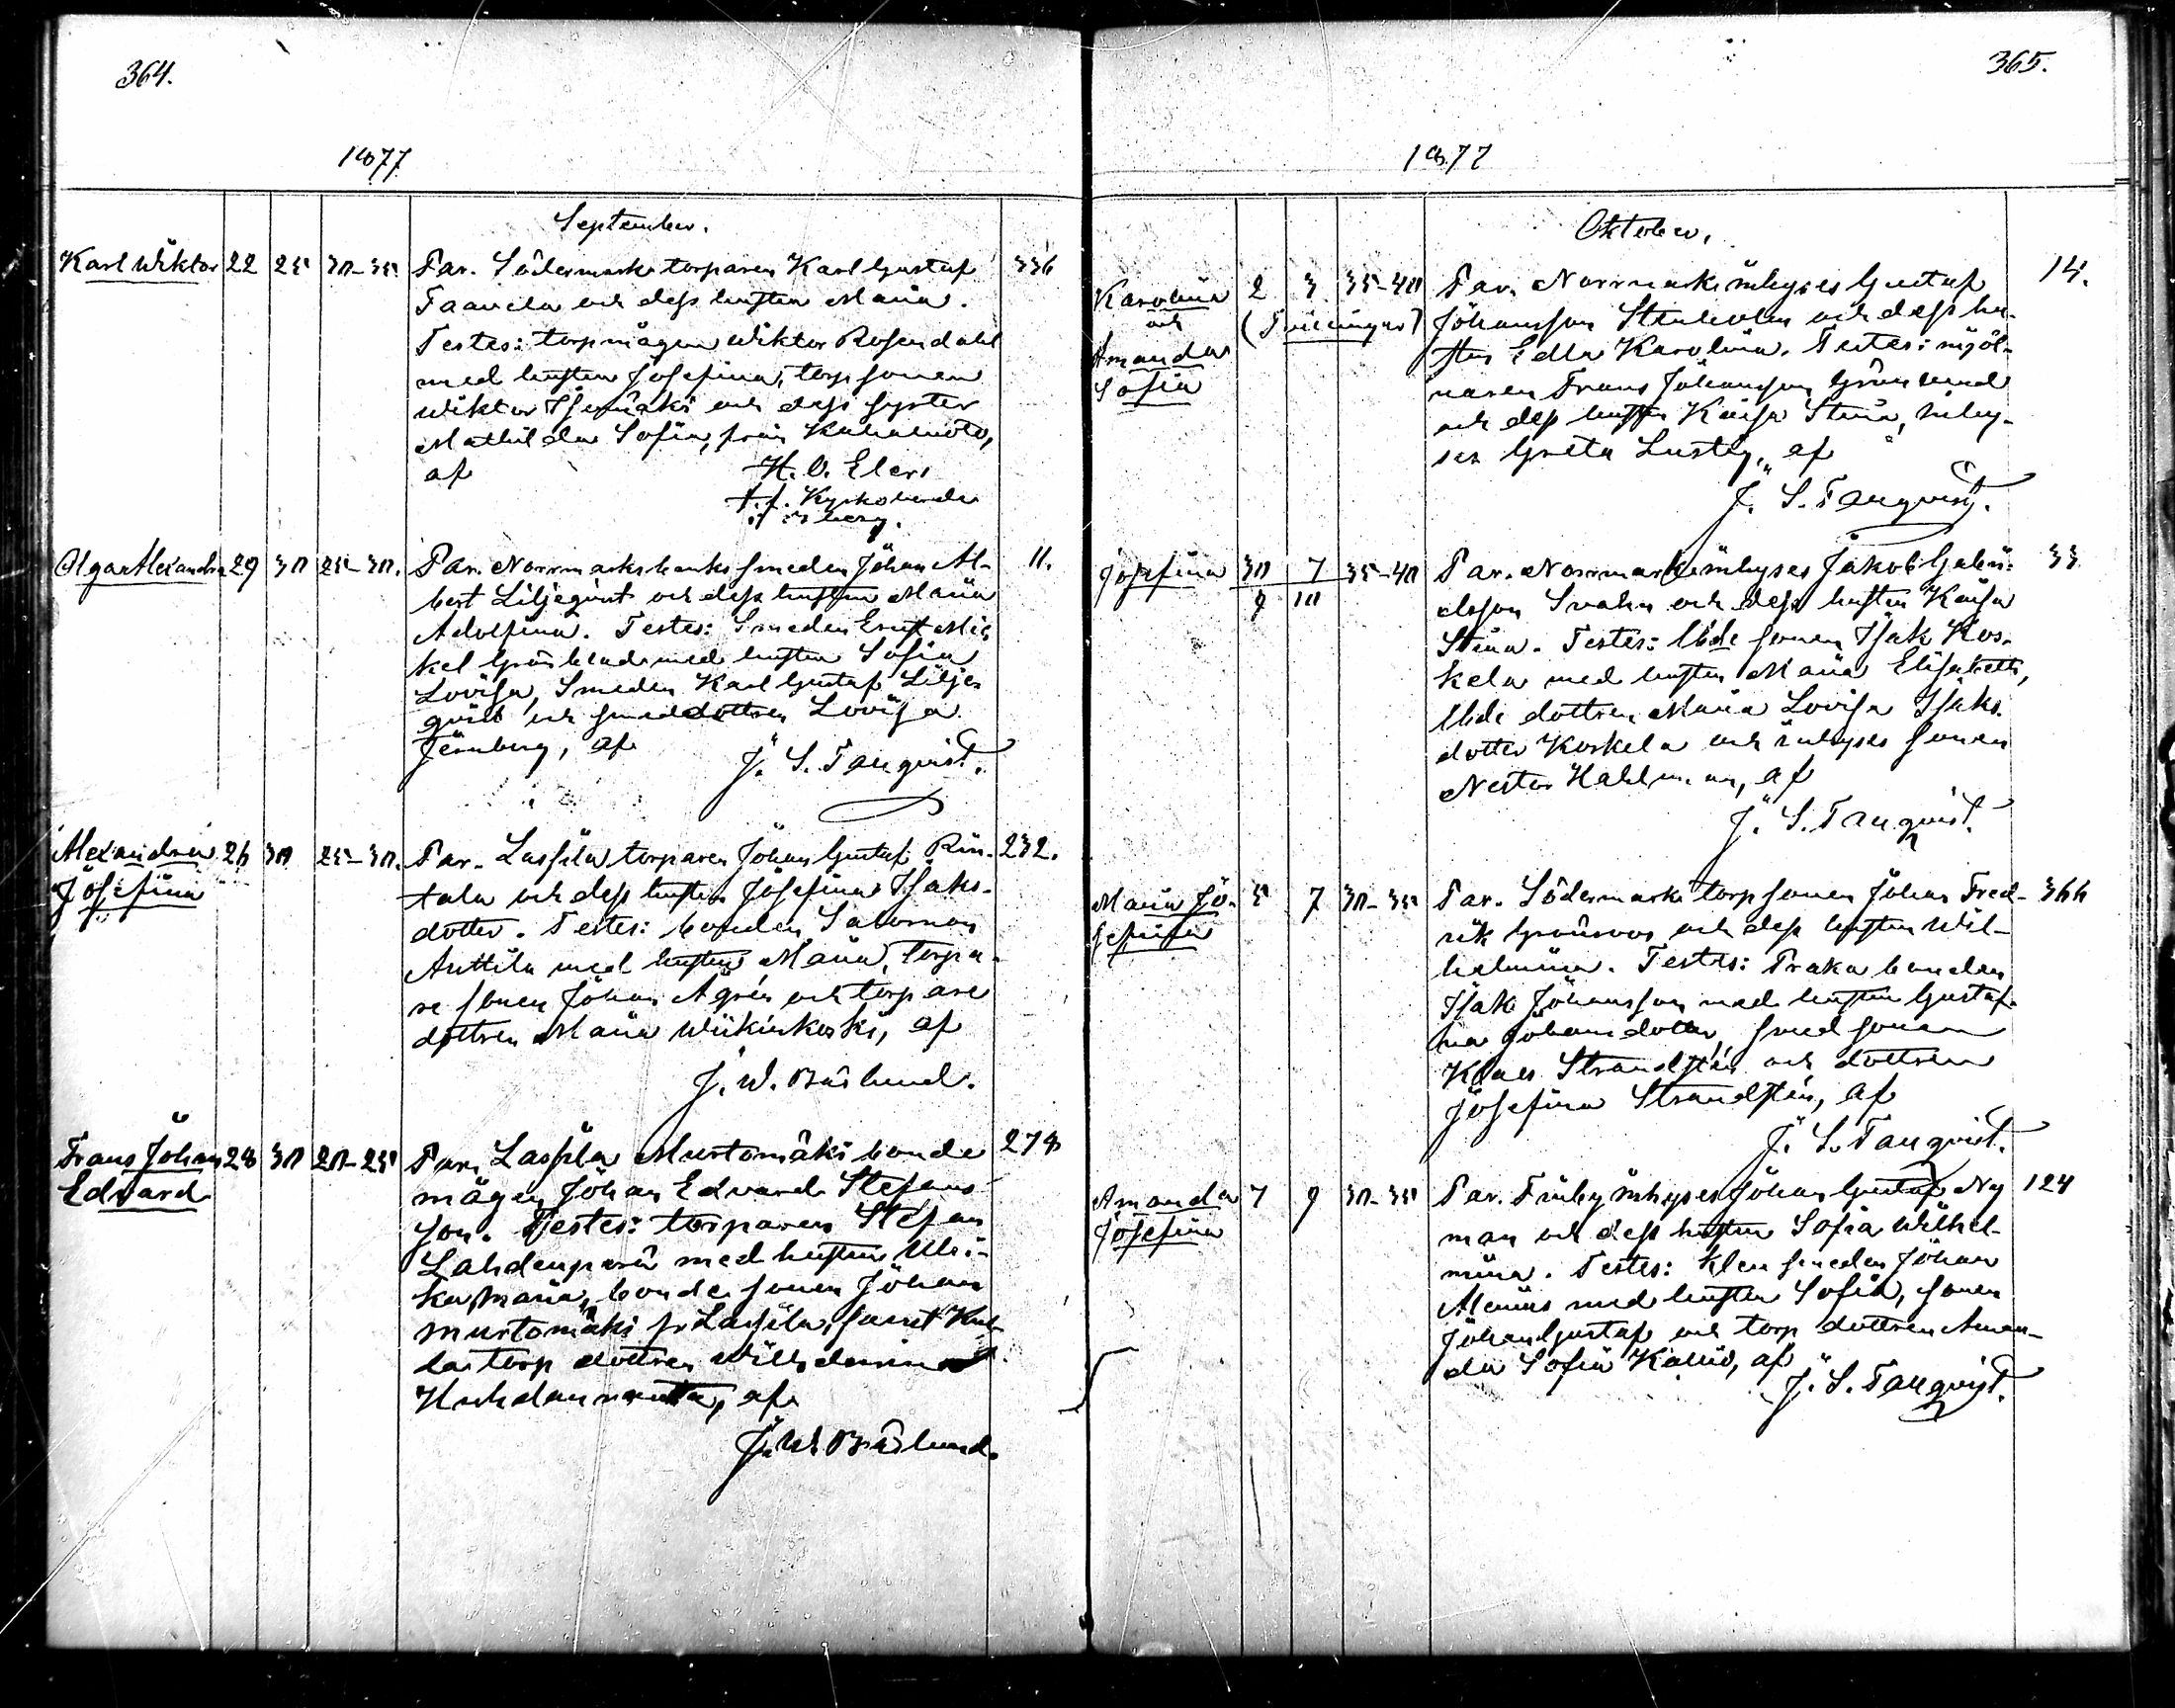 364.
1877
September.
Karl Wiktor 22 25 30-35 Par. Södermarks torparen Karl Gustaf 336
Taanila och dess hustru Maria.
Testes: torpmågen Wiktor Rosendahl
med hustru Josefina, torpsonen
Wiktor Isomäki och dess syster
Mathilda Sofia, från
af H. O. Elers
t.f. Kyrkoherde
Olga Alexandra 29 30 25-30. Par. Norrmarks bruks smeden Johan Al- 11.
bert Liljeqvist och dess hustru Maria
Adolfina. Testes: Smeden Ernst Mic
kel Grönblad med hustru Sofia
Lovisa, Smeden Karl Gustaf Liljeqvist
och smeddottren Lovisa
Jernberg, af J. S. Tanqvist.
Alexandra 26 30 25-30. Par. Lassila torparen Johan Gustaf Rin- 232.
Josefina
tala och dess hustru Josefina Isaks-
dotter. Testes: bonden Salomon
Anttila med hustru Maria, torpa-
re sonen Johan Agrén och torpare
dottren Maria Wiikinkoski, af
J. W. Båslund.
Frans Johan 28 30 20-25 Par. Lassila Murtomäki bonde 278
Edvard
mågen Johan Edvard Stefans
son. Testes: torparen Stefan
Lahdenperä med hustru Ulri-
ka Maria, bonde sonen Johan
Murtomäki fr Lassila, samt
la torp dottren Wilhelmina
af
J. W. Båslund.
365.
1877
Oktober.
Karolina 2 3 35-40 Par. Norrmarks inhyses Gustaf 14.
och (Trillingar) Johansson Stenholm och dess hu-
Amanda stru Edla Karolina. Testes: mjöl-
Sofia naren Frans Johansson Grönlund
och dess hustru Kaisa Stina, inhy-
ses Greta Lustig, af
J. S. Tanqvist.
Josefina 30 7 35-40 Par. Norrmarks inhyses Jakob Gabri- 33
9 10 elsson Svahn och dess hustru Kaisa
Stina. Testes: Ibde sonen Isak Kos-
kela med hustru Maria Elisabeth,
Ibde dottren Maria Lovisa Isaks
dotter Koskela och inhyses sonen
Nestor Hallman, af
J. S. Tanqvist.
Maria Jo- 5 7 30-35 Par. Södermarks torpsonen Johan Fred- 366
sefina
rik Grönroos och dess hustru Wil-
helmina. Testes: Praka bonden
Isak Johansson med hustru Gustaf-
na Johansdotter, smedsonen
Klaes Strandstén och dottren
Josefina Strandstén, af
J. S. Tanqvist.
Amanda 7 9 30-35 Par. Finby inhyses Johan Gustaf Ny 124
Josefina
man och dess hustru Sofia Wilhel-
mina. Testes: Klensmeden Johan
Alenius med hustru Sofia, sonen
Johan Gustaf och torp dottren Aman-
da Sofia Kallio, af
J. S. Tanqvist.